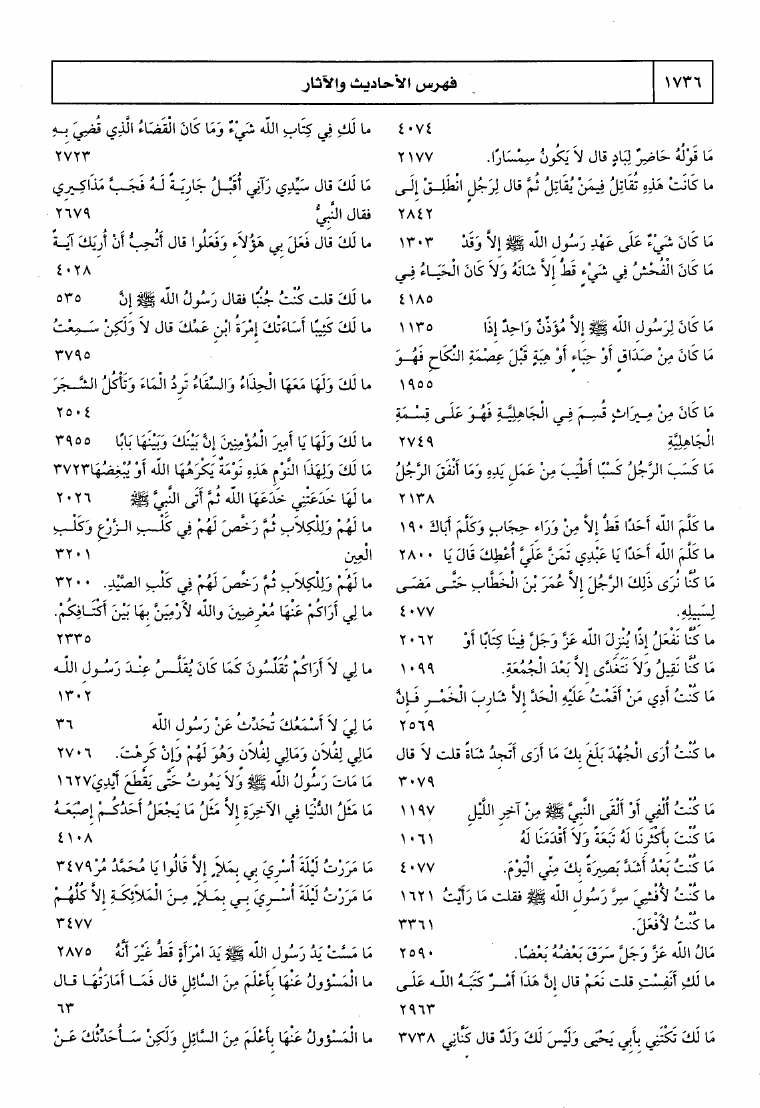 ١٧٣٦
فهرس الأحاديث والآثار
٤٠٧٤
مَا قَوْلُهُ حَاضِرٌ لِبَادٍ قال لاَ يَكُونُ سِمْسَارًا. ٢١٧٧
ما كَانَتْ هَذِهِ تُقَاتِلُ فِيمَنْ يُقَاتِلُ ثُمَّ قال لِرَجُلٍ انْطَلِقْ إِلَى
٢٨٤٢
مَا كَانَ شَيْءٌ عَلَى عَهْدِ رَسُولِ الله ﷺ إِلاَّ وَقَدْ ١٣٠٣
مَا كَانَ الْفُحْشُ فِي شَيْءٍ قَطُّ إِلاَّ شَانَهُ وَلاَ كَانَ الْحَيَاءُ فِي
٤١٨٥
مَا كَانَ لِرَسُولِ الله ﷺ إِلاَّ مُؤَذِّنٌ وَاحِدٌ إِذَا ١١٣٥
مَا كَانَ مِنْ صَدَاقٍ أَوْ حِبَاءٍ أَوْ هِبَةٍ قَبْلَ عِصْمَةِ النِّكَاحِ فَهُوَ
١٩٥٥
مَا كَانَ مِنْ مِيرَاثٍ قُسِمَ فِي الْجَاهِلِيَّةِ فَهُوَ عَلَى قِسْمَةِ
الْجَاهِلِيَّةِ ٢٧٤٩
مَا كَسَبَ الرَّجُلُ كَسْبًا أَطْيَبَ مِنْ عَمَلِ يَدِهِ وَمَا أَنْفَقَ الرَّجُلُ
٢١٣٨
ما كَلَّمَ الله أَحَدًا قَطُّ إِلاَّ مِنْ وَرَاءِ حِجَابٍ وَكَلَّمَ أَبَاكَ ١٩٠
ما كَلَّمَ الله أَحَدًا يَا عَبْدِي تَمَنَّ عَلَيَّ أُعْطِكَ قَالَ يَا ٢٨٠٠
مَا كُنَّا نُرَى ذَلِكَ الرَّجُلَ إِلاَّ عُمَرَ بْنَ الْخَطَّابِ حَتَّى مَضَى
لِسَبِيلِهِ. ٤٠٧٧
ما كُنَّا نَفْعَلُ إِذًا يُنْزِلَ الله عَزَّ وَجَلَّ فِينَا كِتَابًا أَوْ ٢٠٦٢
مَا كُنَّا نَقِيلُ وَلاَ نَتَغَدَّى إِلاَّ بَعْدَ الْجُمُعَةِ. ١٠٩٩
مَا كُنْتُ أَدِي مَنْ أَقَمْتُ عَلَيْهِ الْحَدَّ إِلاَّ شَارِبَ الْخَمْرِ فَإِنَّ
٢٥٦٩
ما كُنْتُ أُرَى الْجُهْدَ بَلَغَ بِكَ مَا أَرَى أَتَجِدُ شَاةً قلت لاَ قال
٣٠٧٩
مَا كُنْتُ أُلْفِي أَوْ أَلْقَى النَّبِيَّ ﷺ مِنْ آخِرِ اللَّيْلِ ١١٩٧
مَا كُنْتَ بِأَكْثَرِنَا لَهُ تَبَعَةً وَلاَ أَقْدَمَنَا لَهُ ١٠٦١
مَا كُنْتُ بَعْدُ أَشَدَّ بَصِيرَةً بِكَ مِنِّي الْيَوْمَ. ٤٠٧٧
ما كُنْتُ لأُفْشِيَ سِرَّ رَسُولِ الله ﷺ فقلت مَا رَأَيْتُ ١٦٢١
ما كُنْتُ لأَفْعَلَ. ٣٣٦١
مَالُ الله عَزَّ وَجَلَّ سَرَقَ بَعْضُهُ بَعْضًا. ٢٥٩٠
ما لَكِ أَنَفِسْتِ قلت نَعَمْ قال إِنَّ هَذَا أَمْرٌ كَتَبَهُ الله عَلَى
٢٩٦٣
مَا لَكَ تَكْتَنِي بِأَبِي يَحْيَى وَلَيْسَ لَكَ وَلَدٌ قال كَنَّانِي ٣٧٣٨
ما لَكِ فِي كِتَابِ الله شَيْءٌ وَمَا كَانَ الْقَضَاءُ الَّذِي قُضِيَ بِهِ
٢٧٢٣
مَا لَكَ قال سَيِّدِي رَآنِي أُقَبِّلُ جَارِيَةً لَهُ فَجَبَّ مَذَاكِيرِي
فقال النَّبِيُّ ٢٦٧٩
ما لَكَ قال فَعَلَ بِي هَؤُلاَءِ وَفَعَلُوا قال أَتُحِبُّ أَنْ أُرِيَكَ آيَةً
٤٠٢٨
ما لَكَ قلت كُنْتُ جُنُبًا فقال رَسُولُ الله ﷺ إِنَّ ٥٣٥
ما لَكَ كَئِيبًا أَسَاءَتْكَ إِمْرَةُ ابْنِ عَمِّكَ قال لاَ وَلَكِنْ سَمِعْتُ
٣٧٩٥
ما لَكَ وَلَهَا مَعَهَا الْحِذَاءُ وَالسِّقَاءُ تَرِدُ الْمَاءَ وَتَأْكُلُ الشَّجَرَ
٢٥٠٤
ما لَكَ وَلَهَا يَا أَمِيرَ الْمُؤْمِنِينَ إِنَّ بَيْنَكَ وَبَيْنَهَا بَابًا ٣٩٥٥
مَا لَكَ وَلِهَذَا النَّوْمِ هَذِهِ نَوْمَةٌ يَكْرَهُهَا الله أَوْ يُبْغِضُهَا ٣٧٢٣
ما لَهَا خَدَعَتْنِي خَدَعَهَا الله ثُمَّ أَتَى النَّبِيَّ ﷺ ٢٠٢٦
ما لَهُمْ وَلِلْكِلاَبِ ثُمَّ رَخَّصَ لَهُمْ فِي كَلْبِ الزَّرْعِ وَكَلْبِ
الْعِينِ ٣٢٠١
ما لَهُمْ وَلِلْكِلاَبِ ثُمَّ رَخَّصَ لَهُمْ فِي كَلْبِ الصَّيْدِ. ٣٢٠٠
ما لِي أَرَاكُمْ عَنْهَا مُعْرِضِينَ والله لأَرْمِيَنَّ بِهَا بَيْنَ أَكْتَافِكُمْ.
٢٣٣٥
ما لِي لاَ أَرَاكُمْ تُقَلِّسُونَ كَمَا كَانَ يُقَلَّسُ عِنْدَ رَسُولِ الله
١٣٠٢
مَا لِيَ لاَ أَسْمَعُكَ تُحَدِّثُ عَنْ رَسُولِ الله ٣٦
مَالِي لِفُلاَنٍ وَمَالِي لِفُلاَنٍ وَهُوَ لَهُمْ وَإِنْ كَرِهْتَ. ٢٧٠٦
مَا مَاتَ رَسُولُ الله ﷺ وَلاَ يَمُوتُ حَتَّى يَقْطَعَ أَيْدِيَ ١٦٢٧
مَا مَثَلُ الدُّنْيَا فِي الآخِرَةِ إِلاَّ مَثَلُ مَا يَجْعَلُ أَحَدُكُمْ إِصْبَعَهُ
٤١٠٨
مَا مَرَرْتُ لَيْلَةَ أُسْرِيَ بِي بِمَلإٍ إِلاَّ قَالُوا يَا مُحَمَّدُ مُرْ ٣٤٧٩
مَا مَرَرْتُ لَيْلَةَ أُسْرِيَ بِي بِمَلإٍ مِنَ الْمَلاَئِكَةِ إِلاَّ كُلُّهُمْ
٣٤٧٧
مَا مَسَّتْ يَدُ رَسُولِ الله ﷺ يَدَ امْرَأَةٍ قَطُّ غَيْرَ أَنَّهُ ٢٨٧٥
ما الْمَسْؤُولُ عَنْهَا بِأَعْلَمَ مِنَ السَّائِلِ قال فَمَا أَمَارَتُهَا قال
٦٣
ما الْمَسْؤُولُ عَنْهَا بِأَعْلَمَ مِنَ السَّائِلِ وَلَكِنْ سَأُحَدِّثُكَ عَنْ